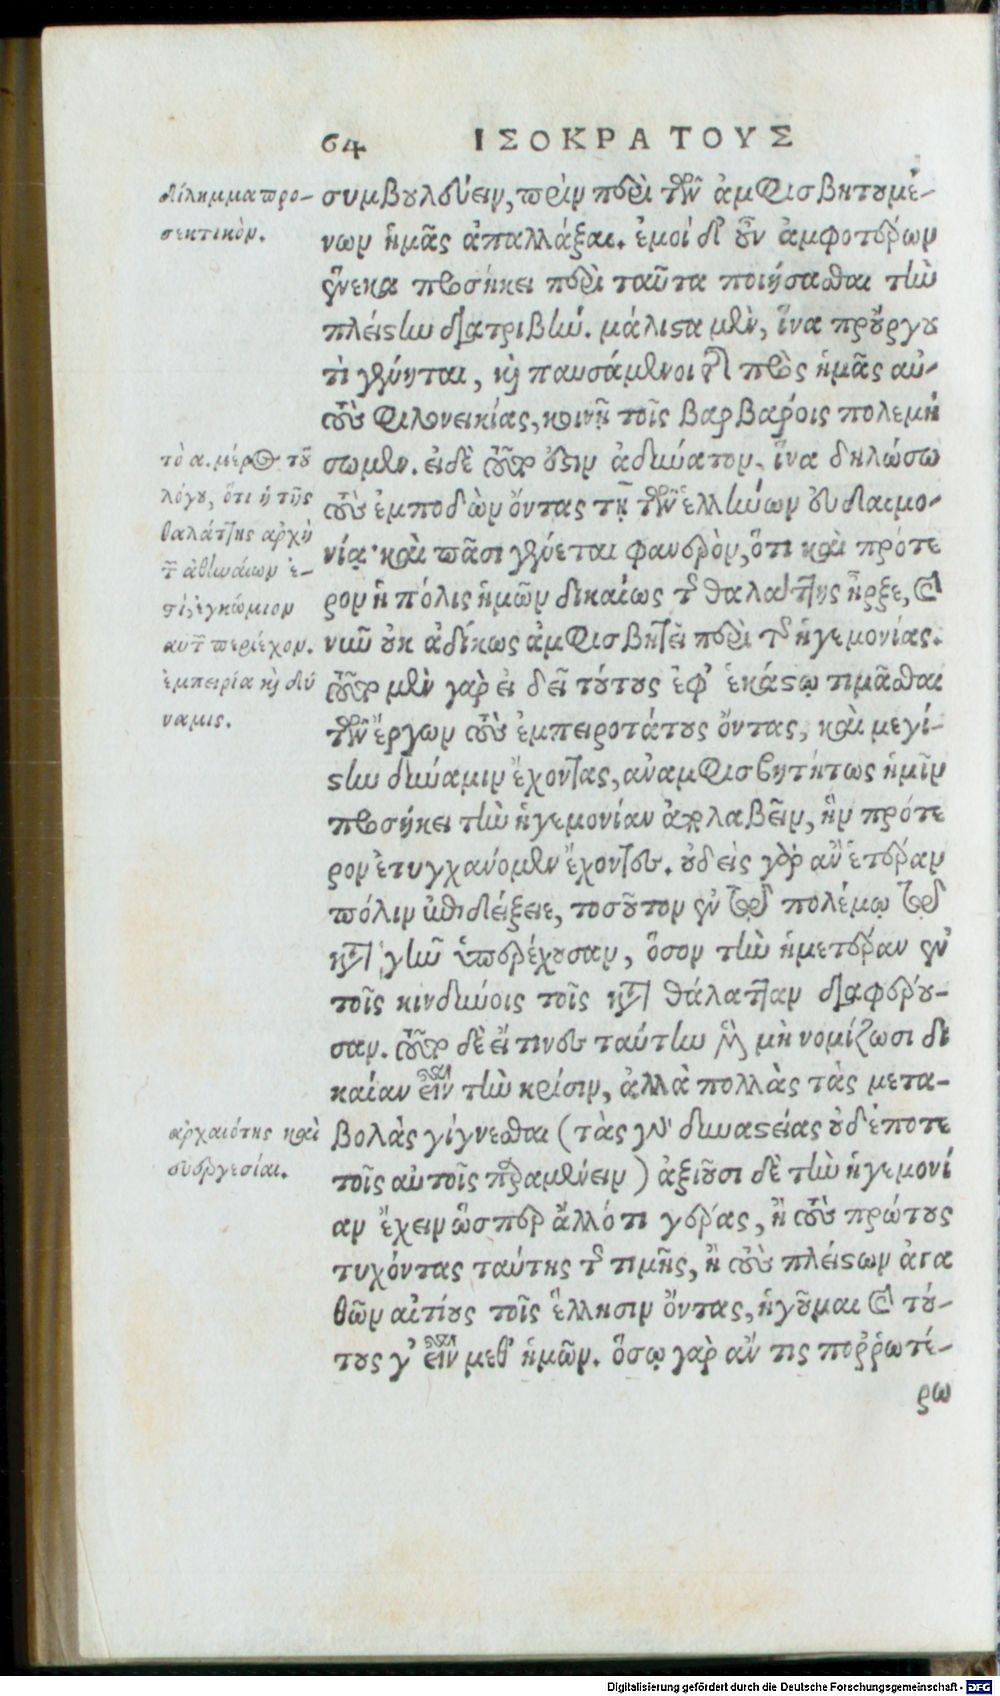 64 ΙΣΟΚΡΑΤΟΥΣ
δίλημμα προ-
σεκτικὸν.
συμβουλεύειν, πρὶν περὶ τῶν ἀμφισβητουμέ-
νων ἡμᾶς ἀπαλλάξαι. ἐμοὶ δ' οὖν ἀμφοτέρων
ἕνεκα προσήκει περὶ ταῦτα ποιήσασθαι τὴν
πλείστην διατριβήν. μάλιστα μὲν, ἵνα προὔργου
τι γένηται, καὶ παυσάμενοι τῆς πρὸς ἡμᾶς αὐ-
τοὺς φιλονεικίας, κοινῇ τοῖς βαρβάροις πολεμή
σωμεν. εἰ δὲ τοῦτ' ἐστὶν ἀδύνατον, ἵνα δηλώσω
τοὺς ἐμποδὼν ὄντας τῇ τῶν ἑλλήνων εὐδαιμο-
νίᾳ· καὶ πᾶσι γένηται φανερὸν, ὅτι καὶ πρότε
ρον ἡ πόλις ἡμῶν δικαίως τῆς θαλάττης ἦρξε, καὶ
νῦν οὐκ ἀδίκως ἀμφισβητεῖ περὶ τῆς ἡγεμονίας.
τὸ α. μέρος τοῦ
λόγου, ὅτι ἡ τῆς
θαλάττης ἀρχὴ
τῶν ἀθηναίων ἐ-
στί, ἐγκώμιον
αὐτῶν περιέχον.
ἐμπειρία καὶ δύ
ναμις.
τοῦτο μὲν γὰρ εἰ δεῖ τούτους ἐφ' ἑκάστῳ τιμᾶσθαι
τῶν ἔργων τοὺς ἐμπειροτάτους ὄντας, καὶ μεγί-
στην δύναμιν ἔχοντας, ἀναμφισβητήτως ἡμῖν
προσήκει τὴν ἡγεμονίαν ἀπολαβεῖν, ἣν πρότε
ρον ἐτυγχάνομεν ἔχοντες. οὐδεὶς γὰρ ἂν ἑτέραν
πόλιν ἐπιδείξειε, τοσοῦτον ἐν τῷ πολέμῳ τῷ
κατὰ γῆν ὑπερέχουσαν, ὅσον τὴν ἡμετέραν ἐν
τοῖς κινδύνοις τοῖς κατὰ θάλατταν διαφέρου-
σαν. τοῦτο δὲ εἴ τινες ταύτην μὲν μὴ νομίζωσι δι
καίαν εἶναι τὴν κρίσιν, ἀλλὰ πολλὰς τὰς μετα-
βολὰς γίγνεσθαι (τὰς γὰρ δυναστείας οὐδέποτε
τοῖς αὐτοῖς παραμένειν) ἀξιοῦσι δὲ τὴν ἡγεμονί
αν ἔχειν ὥσπερ ἄλλό τι γέρας, ἢ τοὺς πρώτους
τυχόντας ταύτης τῆς τιμῆς, ἢ τοὺς πλείστων ἀγα
θῶν αἰτίους τοῖς ἕλλησιν ὄντας, ἡγοῦμαι καὶ τού-
τους γ' εἶναι μεθ' ἡμῶν. ὅσῳ γὰρ ἄν τις πορῤωτέ-
ρω
ἀρχαιότης καὶ
εὐεργεσίαι.
Digitalisierung gefördert durch die Deutsche Forschungsgemeinschaft - DFG